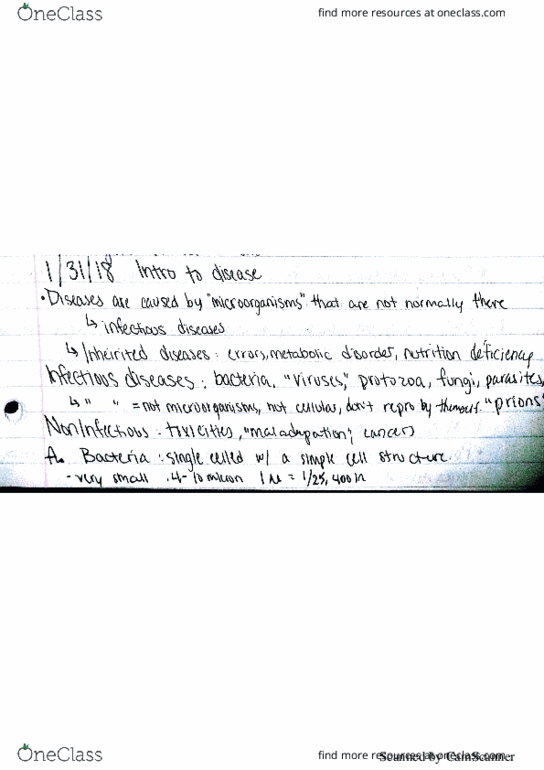 OneClass
find more resources at oneclass.com
1/31/18 Intro to disease
• Diseases are caused by "microorganisms" that are not normally there
↳ infectious diseases
↳ Inheirited diseases: errors, metabolic disorder, nutrition deficiency
Infectious diseases: bacteria, "viruses," protozoa, fungi, parasites,
↳ " " = not microorganisms, not cellular, don't repro by themself. "prions"
NonInfectious: toxicities, "maladapation", cancers
A. Bacteria: single celled w/ a simple cell structure.
- very small .4-10 micron 1 µ = 1/25,400 in
OneClass
find more resources at oneclass.com
Scanned by CamScanner